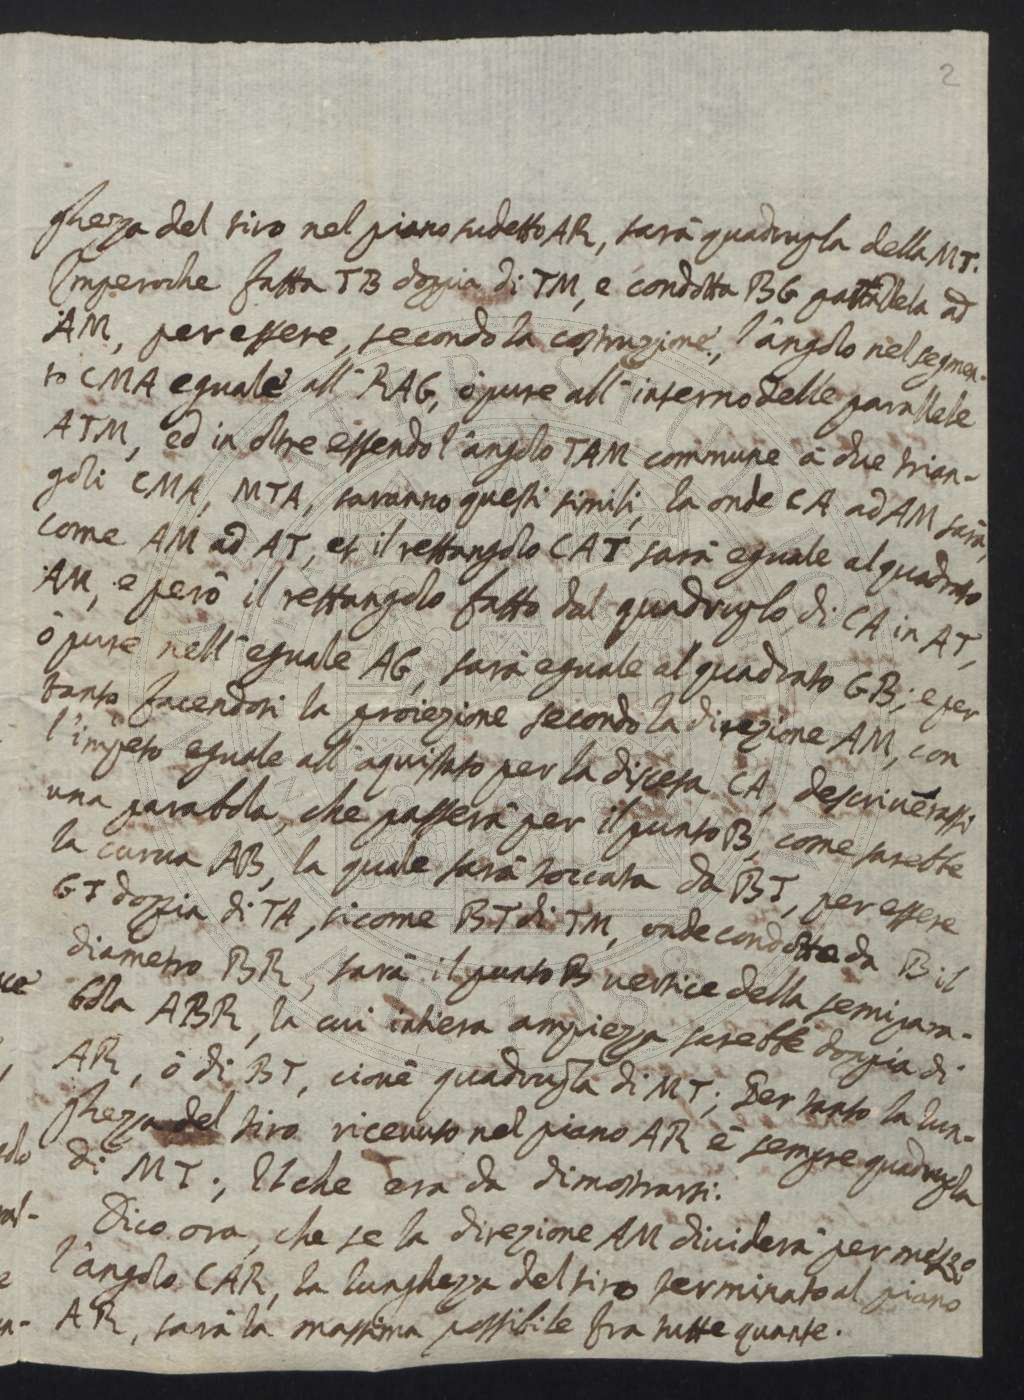 2
ghezza del tiro nel piano sudetto AR, sarà quadrupla della MT.
Imperoche fatta TB doppia di TM, e condotta BG parallela ad
AM, per essere, secondo la costruzione, l'angolo nel segmen-
to CMA eguale all'RAG, ò pure all'interno delle parallele
ATM, ed in oltre essendo l'angolo TAM commune à due trian-
goli CMA, MTA, saranno questi simili, la onde CA ad AM sarà,
come AM ad AT, et il rettangolo CAT sarà eguale al quadrato
AM, e però il rettangolo fatto dal quadruplo di CA in AT,
ò pure nell'eguale AG, sarà eguale al quadrato GB; e per
tanto facendosi la proiezione secondo la direzione AM, con
l'impeto eguale all'aquistato per la discesa CA, descriverassi
una parabola, che passerà per il punto B, come sarebbe
la curva AB, la quale sarà toccata da BT, per essere
GT doppia di TA, sicome BT di TM, onde condotto da B il
diametro BR, sarà il punto B vertice della semipara-
bola ABR, la cui intiera ampiezza sarebbe doppia di
AR, ò di BT, ciouè quadrupla di MT; Per tanto la lun-
ghezza del tiro ricevuto nel piano AR è sempre quadrupla
di MT; Il che era da dimostrarsi.
Dico ora, che se la direzione AM dividerà per mezzo
l'angolo CAR, la lunghezza del tiro terminato al piano
AR, sarà la massima possibile fra tutte quante.